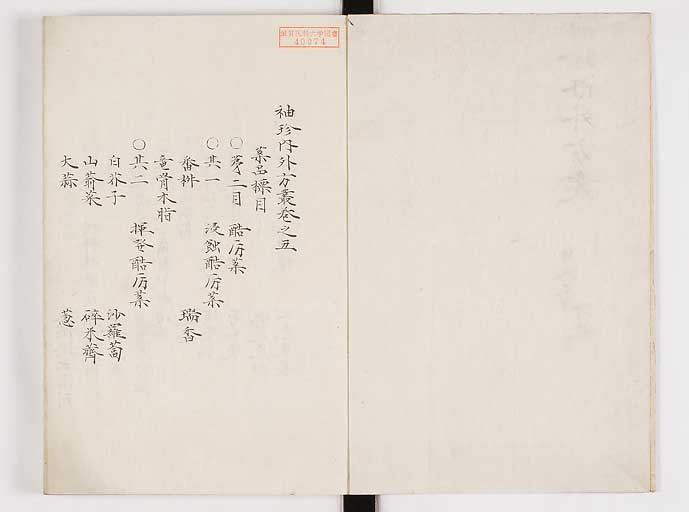 袖珍内外方叢巻之五
薬品標目
○第二目 酷厉薬
○其一 浸蝕酷厉薬
番椒 瑞香
竜骨木脂
○其二 揮発酷厉薬
白芥子 沙羅蔔
山葵菜 碎米薺
大蒜 葱
40274